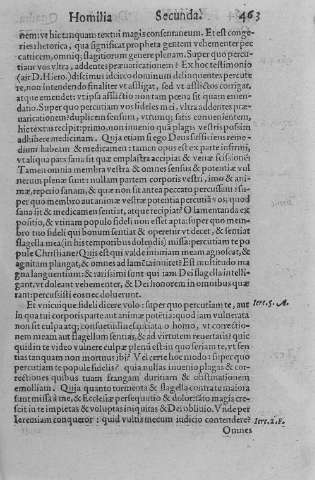 Homilia Secunda. 463
nem: vt hic tanquam textui magis consentaneum. Et est conge-
ries rhetorica, qua significat propheta gentem vehementer pec
catricem, omniq; flagitiorum genere plenam. Super quo percu-
tiam vos vltra, addentes præuaricationem? Ex hoc testimonio
(ait D. Hiero.) discimus idcirco dominum delinquentes percute
re, non intendendo finaliter vt affligat, sed vt afflictos corrigat,
atque emendet: vt ipsa afflictio non tam pœna sit quam emen-
datio. Super quo percutiam vos fideles mei, vltra addentes præ-
uaricationem? duplicem sensum, vtrunq; satis conuenientem,
hic textus recipit: primo. non inuenio quà plagis vestris possim
adhibere medicinam. Quia etiam si ego Deus sufficiens reme-
dium habeam & medicamen: tamen opus est ex parte infirmi,
vt aliqua pars sana sit quæ emplastra accipiat & venæ scisionē:
Tamen omnia membra vestra & omnes sensus & potentiæ vul
neratæ penæ sunt: nullam partem corporis vestri, imo & ani-
mæ, reperio sanam, & quæ non sit antea peccato percussam: su-
per quo membro aut animæ vestræ potentia percutiā vos, quod
sana sit & medicamen sentiat, atque recipiat? O lamentanda ex
positio, & vtinam populo fideli non esset apta: super quo mem-
bro tuo fideli qui bonum sentiat & operetur vt decet, & sentiat
flagella mea (in his temporibus dolendis) missa: percutiam te po
pule Christiane? Quis est qui valde intimam meam agnoscat, &
agnitam plangat, & omnes ad lamēta inuitet? Est multitudo ma
gna languentium: & rarissimi sunt qui iam Dei flagella intelli-
gant, vt doleant vehementer, & Dei honorem in omnibus quæ
rant: percussisti eos nec doluerunt.
Et vnicuique fideli dicere volo: super quo percutiam te, aut Iere. 5. A.
In qua tui corporis parte aut animæ potētia: quod iam vulnerata
non sit culpa atq; consuetudine
correctio-
nem meam aut flagellum sentias, & ad virtutem reuertaris? quic
quid in te video vulnere culpæ plenū est: in quo feriam te, vt sen
tias tanquam non mortuus ibi? Vel certe hoc modo: super quo
percutiam te popule fidelis? quia nullas inuenio plagas & cor-
rectiones quibus tuam frangam duritiam & obstinationem
emolliam. Quia quanto tormenta & flagella contra te maiora
sunt missa à me, & Ecclesiæ persequutio & dolor: tāto magis cre-
scit in te impietas & voluptas iniquitas & Dei obliuio. Vnde per
Ieremiam conqueror: quid vultis mecum iudicio contendere? Iere. 2. F.
Omnes